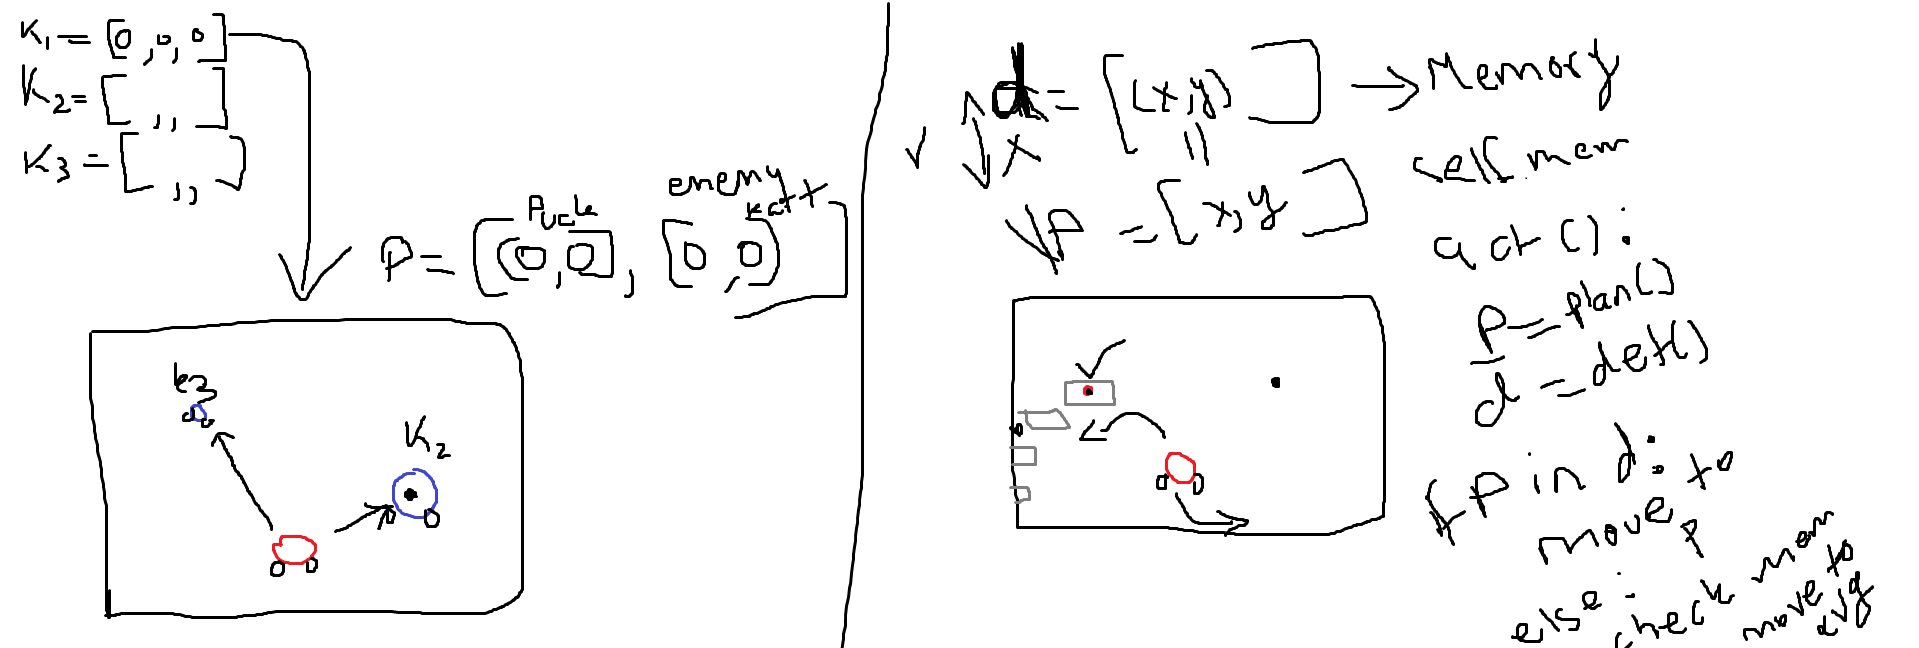 K1 = [0, 0, 0]
K2 = [ , , ]
K3 = [ , , ]
Puck
enemy
kart
P = [(0,0], [0,0)]
k3
K2
d = [(x,y) ] → Memory
x
P = [x,y ]
self.mem
act():
P = plan()
d = det()
if P in d:
move to
P
else:
check mem
move to
avg